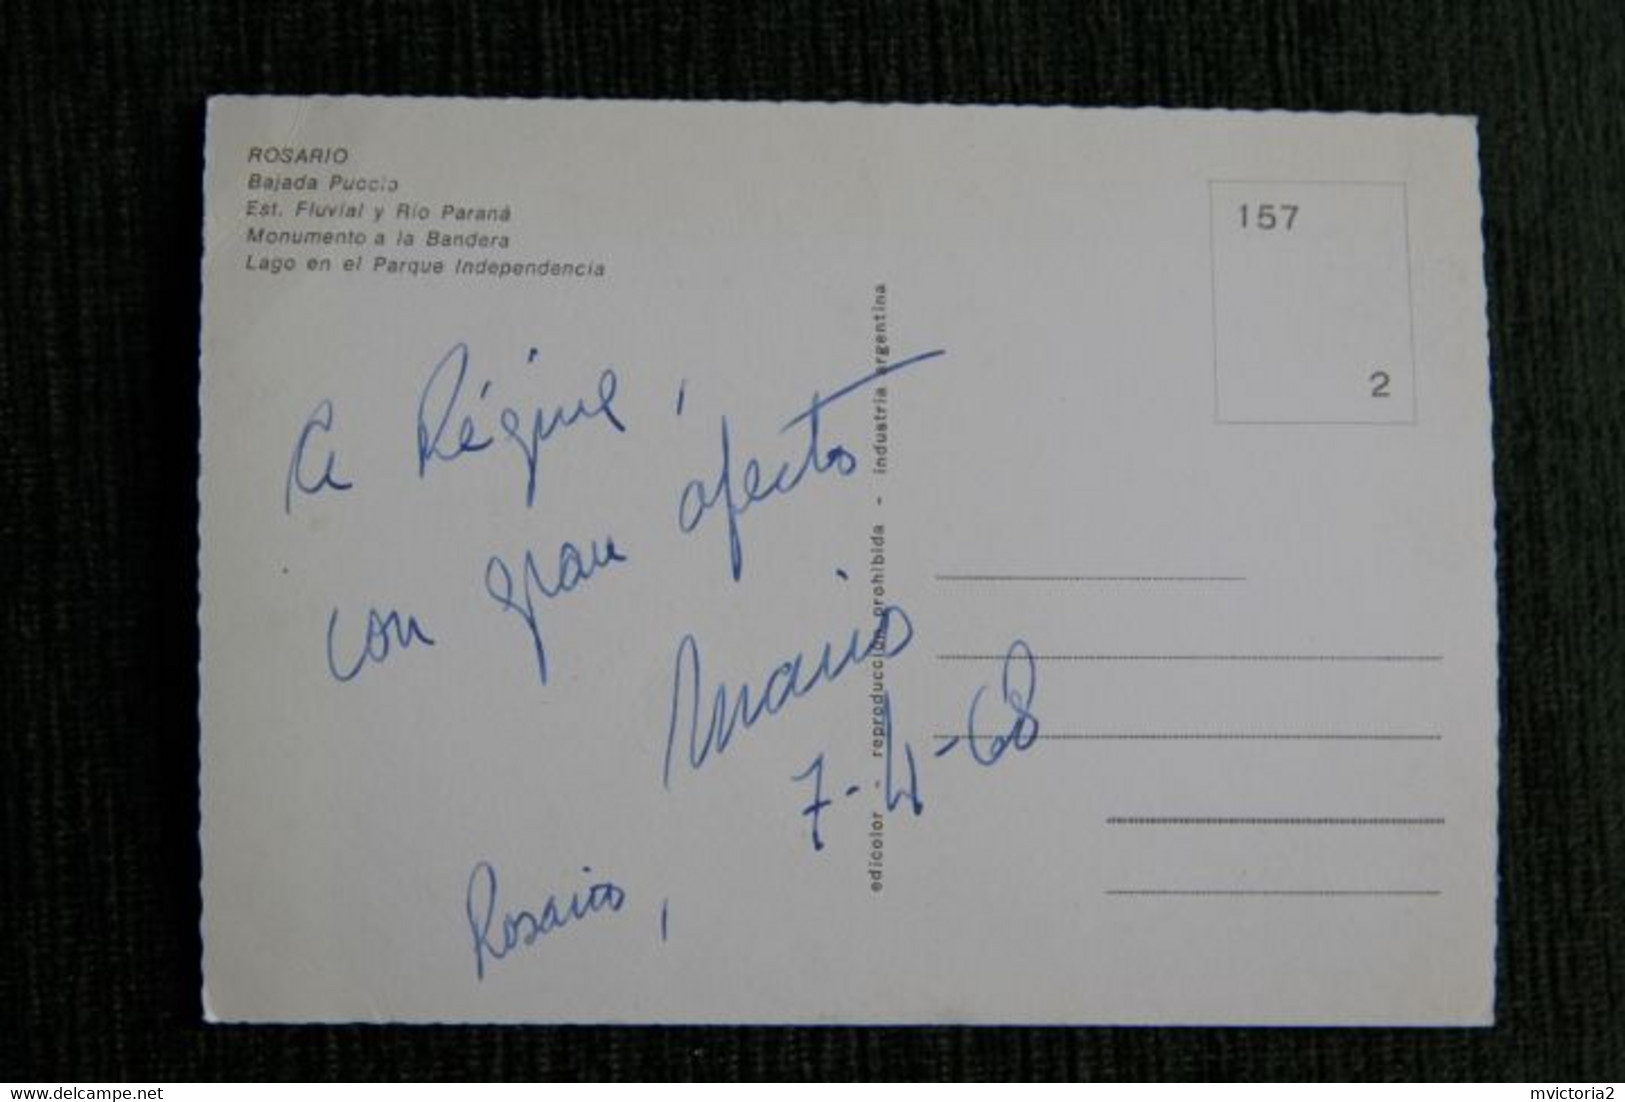 ROSARIO
Bajada Puccio
Est. Fluvial y Rio Paraná
Monumento a la Bandera
Lago en el Parque Independencia
157
2
A Régine,
con gran afecto
Mario
7-4-68
Rosario,
edicolor - reproducción prohibida - industria argentina
www.delcampe.net
mvictoria2